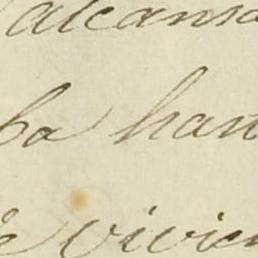 alcansa
ba han
e vivien